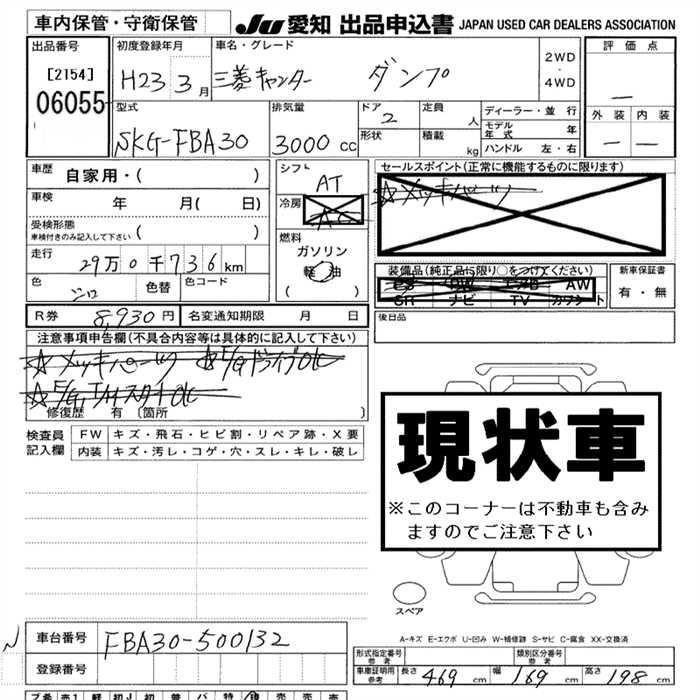 車内保管・守衛保管
JU 愛知 出品申込書 JAPAN USED CAR DEALERS ASSOCIATION
出品番号
[2154]
06055
初度登録年月
H23 3月
車名・グレード
三菱キャンター ダンプ
2WD
・
4WD
評価点
―
外装 内装
― ―
型式
SKG-FBA30
排気量
3000 cc
ドア
2
形状
定員
人
積載
kg
ディーラー・並行
モデル年式 年
ハンドル 左・右
車歴 自家用・( )
車検 年 月( 日)
受検形態
車検付きのみ記入して下さい ( )
走行
29万0千736km
色
シロ
色替
色コード
シフト
AT
冷房
AC
燃料
ガソリン
軽油
( )
セールスポイント(正常に機能するものに限ります)
☆メッキパーツ
装備品(純正品に限り○をつけてください)
PS PW エアB AW
SR ナビ TV カワシート
新車保証書
有・無
後日品
R券 8,930円 名変通知期限 月 日
注意事項申告欄(不具合内容等は具体的に記入して下さい)
☆メッキパーツ ☆E/GドライブOK
☆E/G, T/MスタートOK
修復歴 有〔箇所 〕
検査員記入欄
FW キズ・飛石・ヒビ割・リペア跡・X要
内装 キズ・汚レ・コゲ・穴・スレ・キレ・破レ
現状車
※このコーナーは不動車も含み
ますのでご注意下さい
スペア
A-キズ E-エクボ U-凹み W-補修跡 S-サビ C-腐食 XX-交換済
車台番号 FBA30-500132
登録番号
形式指定番号 参考
類別区分番号 参考
車庫証明用 参考 長さ 469 cm 幅 169 cm 高さ 198 cm